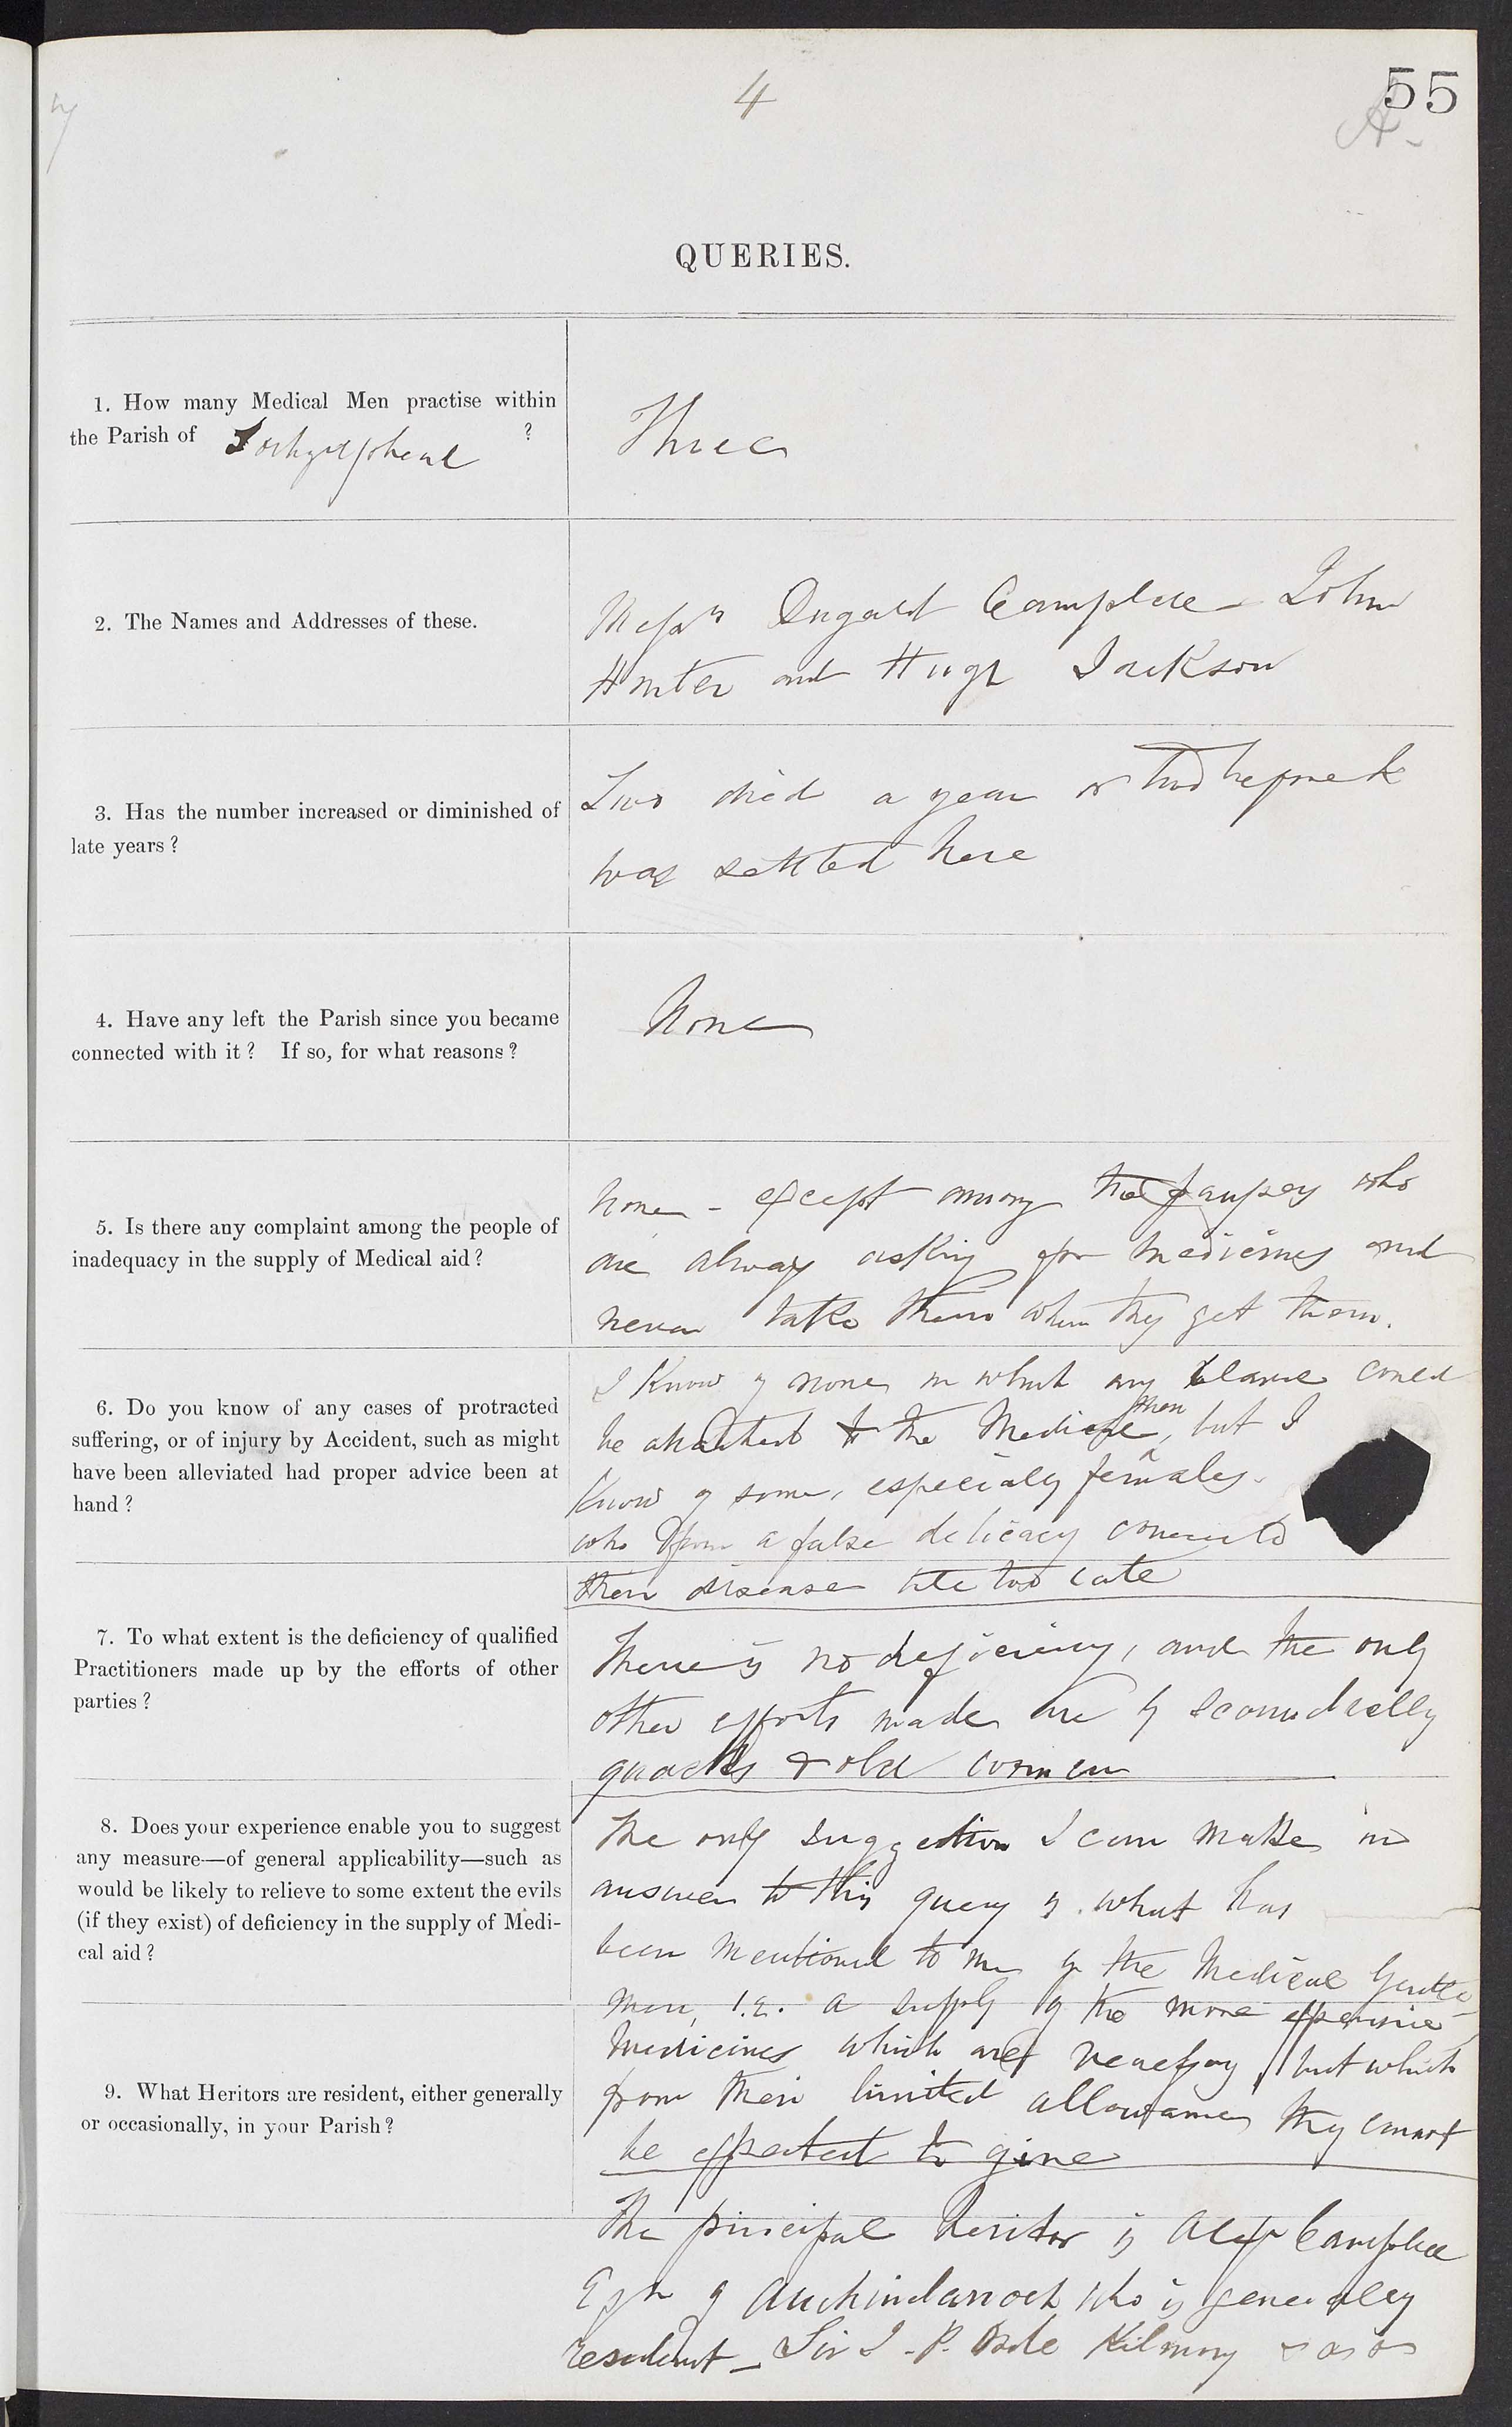 4
55
A.
QUERIES.
1. How many Medical Men practise within
the Parish of Lochgilphead ?
Three
2. The Names and Addresses of these.
Messrs Dugald Campbell John
Hunter and Hugh Jackson
3. Has the number increased or diminished of
late years?
Two died a year or two before I
was settled here
4. Have any left the Parish since you became
connected with it? If so, for what reasons?
None
5. Is there any complaint among the people of
inadequacy in the supply of Medical aid?
None - except among the paupers who
are always asking for medicines and
never take them when they get them.
6. Do you know of any cases of protracted
suffering, or of injury by Accident, such as might
have been alleviated had proper advice been at
hand?
I know of none in which any blame could
be attached to the Medical men, but I
know of some, especialy females.
who from a false delicacy conceald
their disease till too late
7. To what extent is the deficiency of qualified
Practitioners made up by the efforts of other
parties?
There is no deficiency, and the only
other efforts made are by scoundrelly
quacks & old women
8. Does your experience enable you to suggest
any measure—of general applicability—such as
would be likely to relieve to some extent the evils
(if they exist) of deficiency in the supply of Medi-
cal aid?
The only suggestion I can make in
answer to this query is what has
been mentioned to me by the Medical Gentle
men, i.e. a supply of the more expensive
Medicines which are necessary but which
from their limited allowances they cannot
be expected to give
9. What Heritors are resident, either generally
or occasionally, in your Parish?
The principal heritor is Alexr Campbell
Esqr of Auchindarroch who is generally
resident - Sir J. P. Orde Kilmory